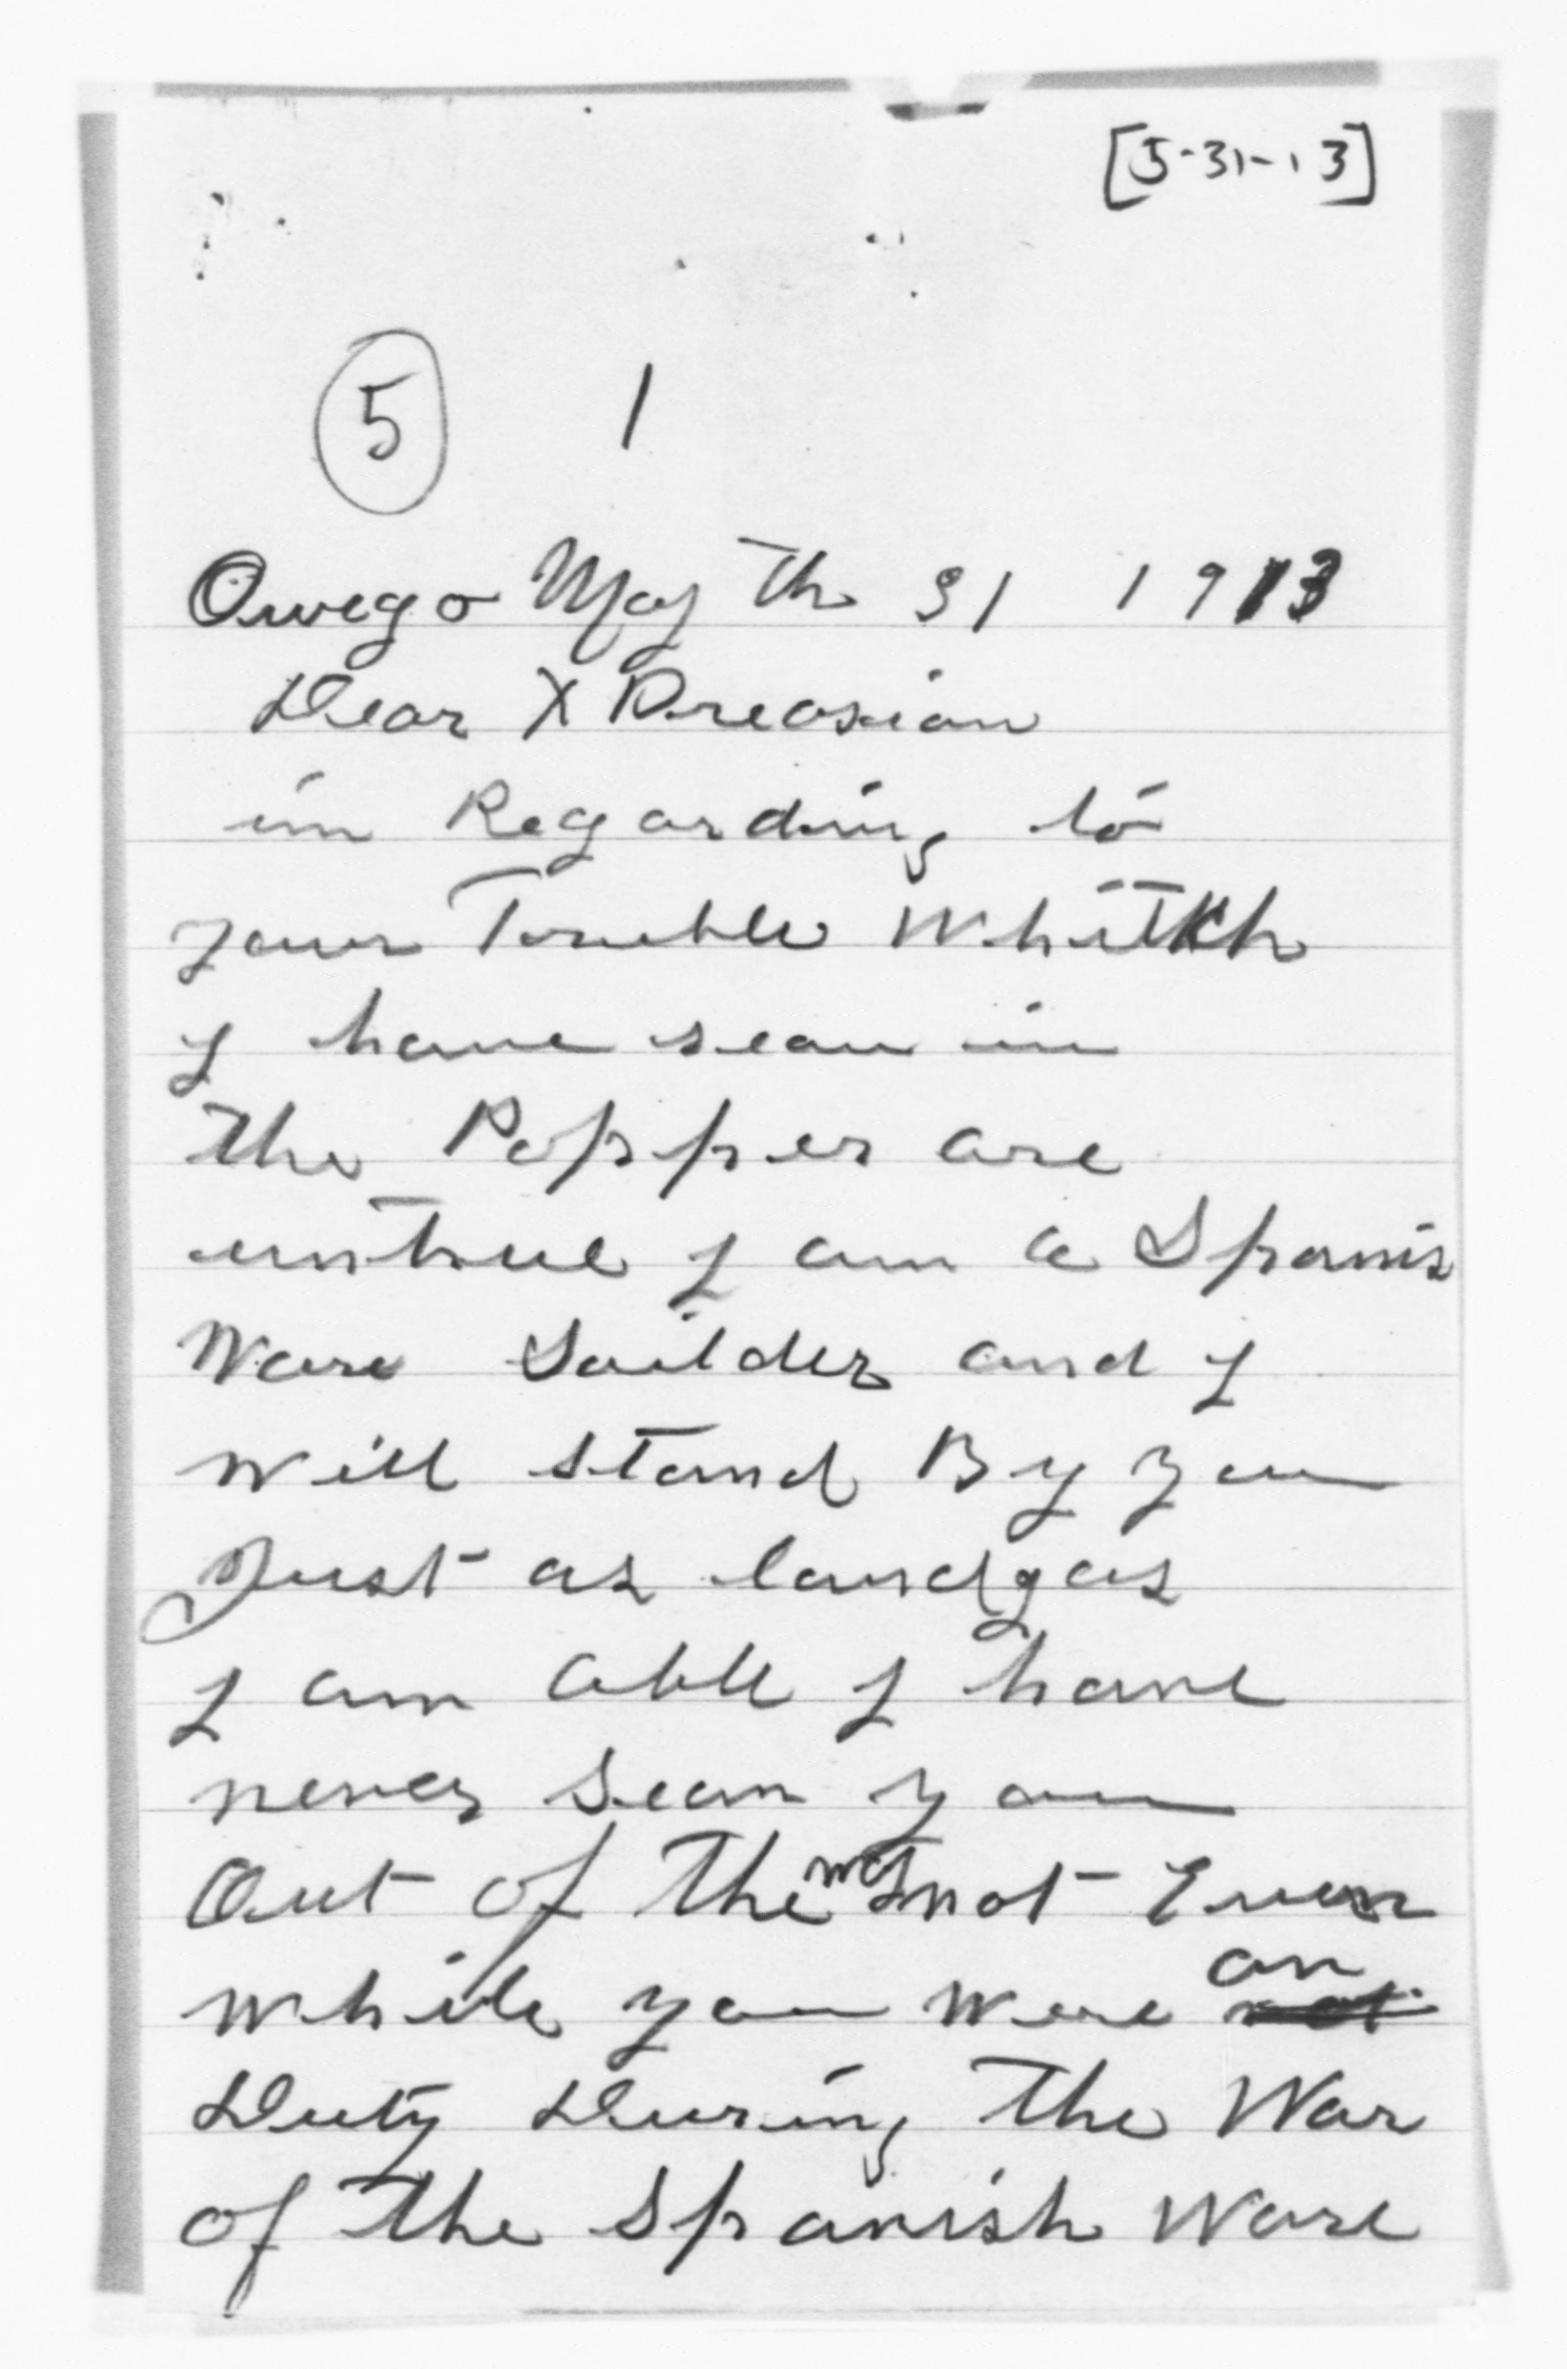 [5-31-13]
5 1
Owego May Th 31 1913
Dear X Preasian
in Regarding to
your Trouble Whitch
I have sean in
the Papper are
untrue I am a Spanis
Ware Soilder and I
will stand By you
Just as long as
I am able I have
never sean you
Out of The way not Even
while you were an
Duty During The War
of The Spanish Ware